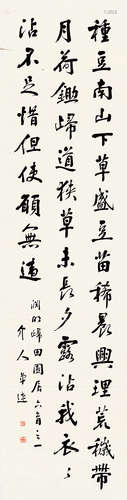 種豆南山下草盛豆苗稀晨興理荒穢帶
月荷鋤歸道狹草木長夕露沾我衣〻
沾不足惜但使願無違
淵明歸田園居六首之一
介人